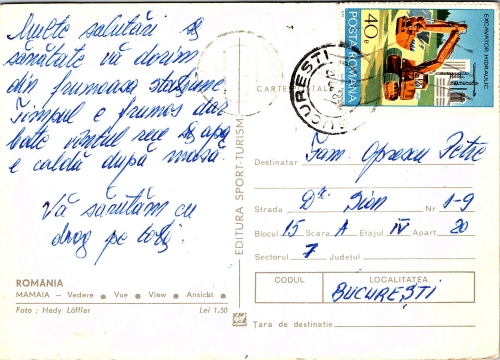 Multe salutări și
sănătate vă dorim
din frumoasa stațiune
Timpul e frumos dar
bate vîntul rece și apa
e caldă după masă.
Vă sărutăm cu
drag pe toți.
ROMÂNIA
MAMAIA – Vedere • Vue • View • Ansicht •
Foto : Hedy Löffler Lei 1,50
EDITURA SPORT-TURISM
CARTE POȘTALĂ
40 B
POSTA ROMANA
EXCAVATOR HIDRAULIC
BUCUREȘTI
Destinatar Fam. Oprescu Petre
Strada Dr. Sion Nr 1-9
Blocul 15 Scara A Etajul IV Apart 20
Sectorul 7 Județul
CODUL LOCALITATEA
BUCUREȘTI
Țara de destinație